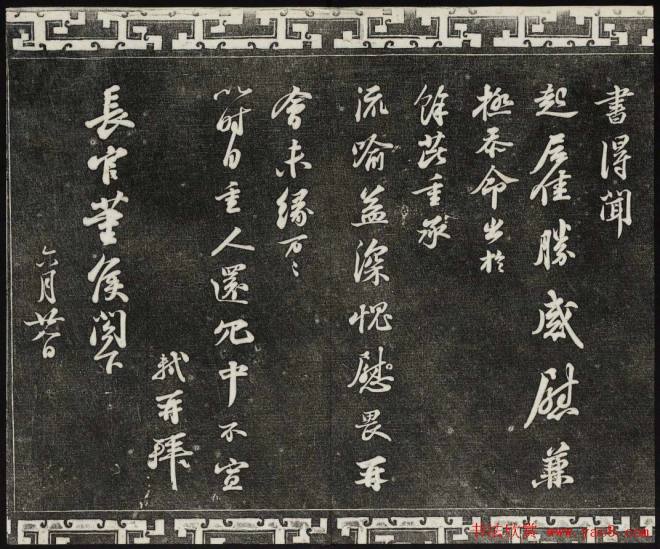 書得聞
起居佳勝感慰兼
極忝命出於
餘芘重承
流喻益深愧慰畏再
會未緣万々
以時自重人還冗中不宣
軾再拜
長官董侯閣下
六月廿八日
书法欣赏 www.yac8.com